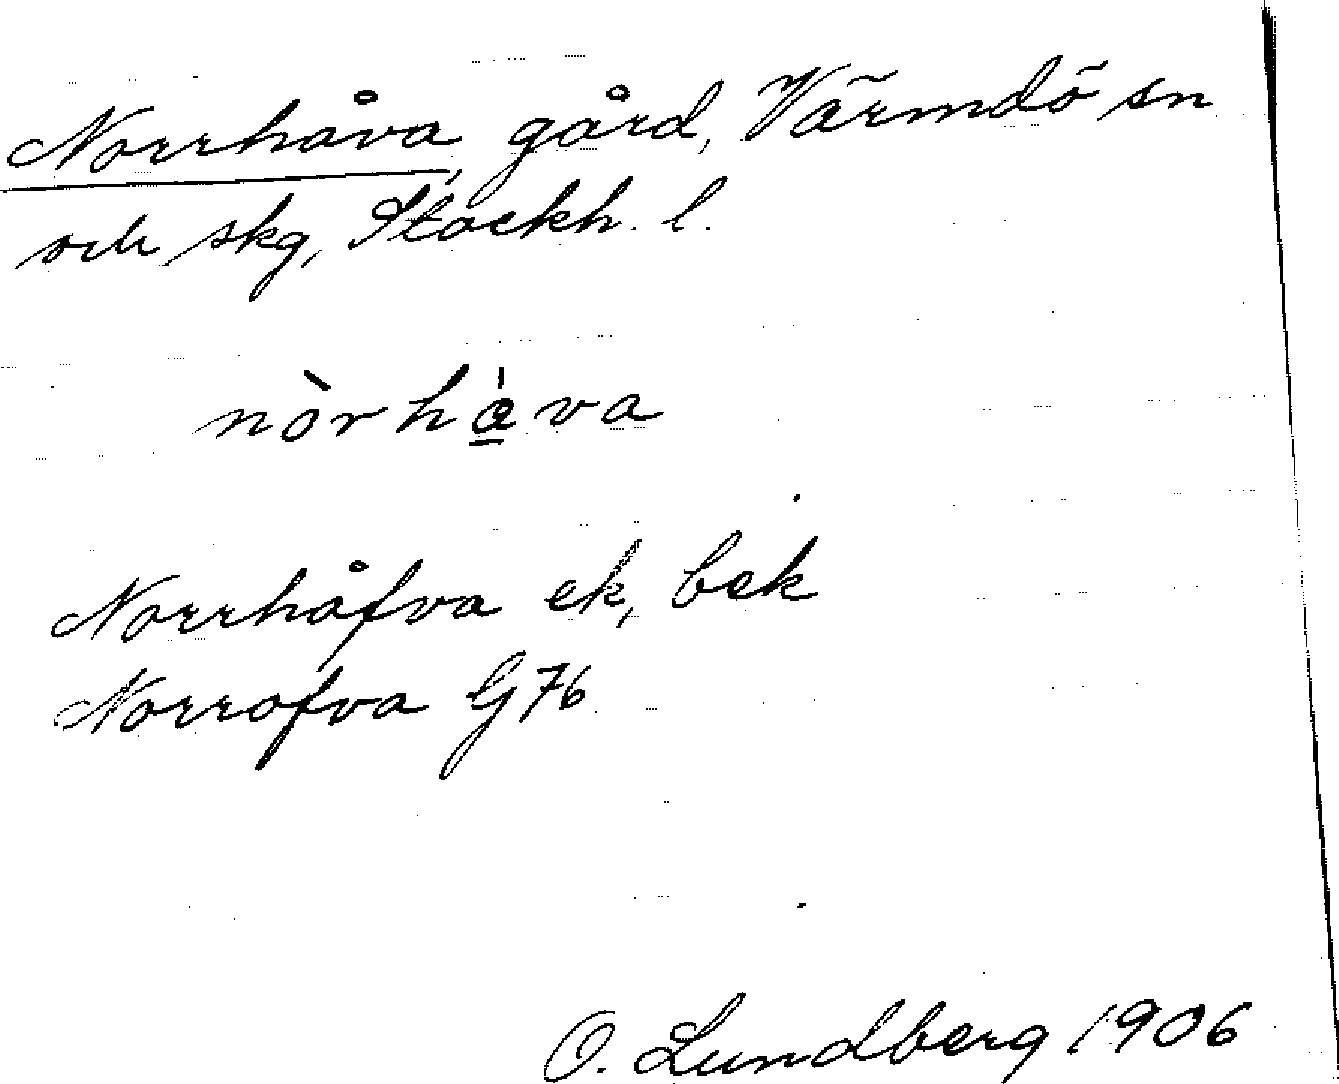 Norrhåva, gård, Värmdö sn
och skg, Stockh. l.
nòrhá̱va
Norrhåfva ek, bek
Norrofva G76
O. Lundberg 1906